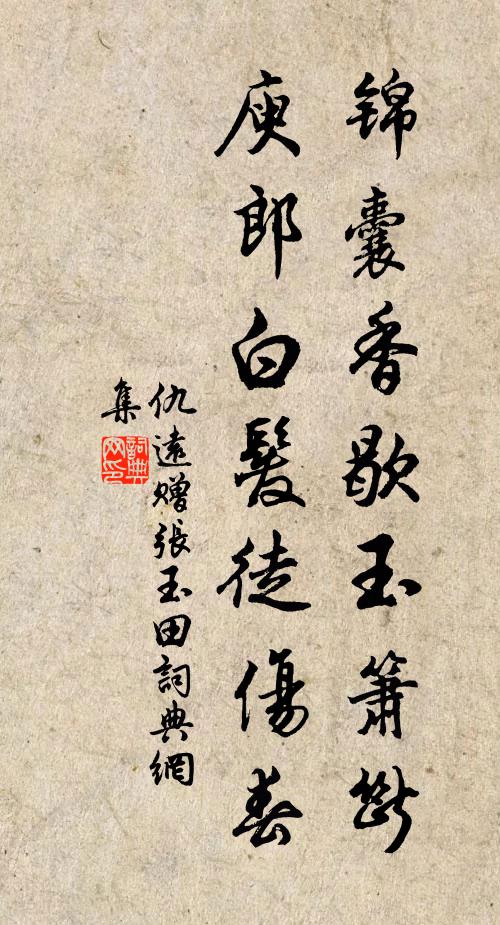 锦囊香歇玉簫斷
庾郎白髮徒傷春
仇遠贈張玉田詞典網
集
詞典
网印